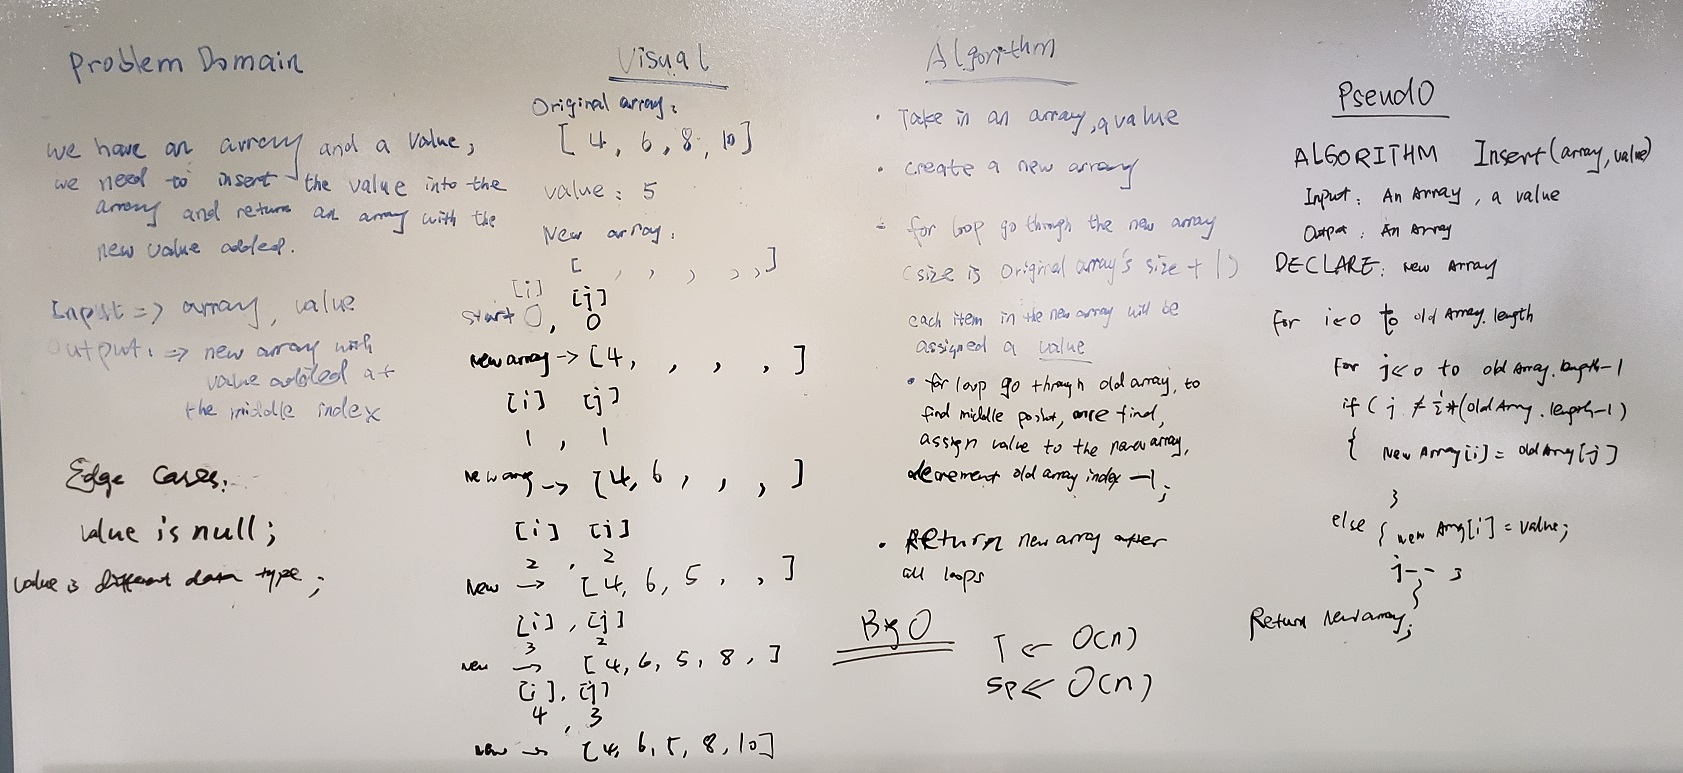 Problem Domain
we have an array and a value;
we need to insert the value into the
array and return an array with the
new value added.
Input => array, value
Output: => new array with
value added at
the middle index
Edge Cases.
value is null;
value is different data type;
Visual
Original array:
[ 4, 6, 8, 10]
value: 5
New array:
[ , , , , , ]
[i] [j]
start 0, 0
new array -> [4, , , , ]
[i] [j]
1 , 1
new array -> [4, 6, , , ]
[i] [j]
2 , 2
new -> [4, 6, 5, , ]
[i], [j]
3 2
new -> [4, 6, 5, 8, ]
[i], [j]
4 , 3
new -> [4, 6, 5, 8, 10]
Algorithm
• Take in an array, a value
• create a new array
- for loop go through the new array
(size is original array's size + 1)
each item in the new array will be
assigned a value
• for loop go through old array, to
find middle point, once find,
assign value to the new array,
decrement old array index -1;
• Return new array after
all loops
Big O
T <- O(n)
Sp <- O(n)
Pseudo
ALGORITHM Insert(array, value)
Input: An Array, a value
Output: An Array
DECLARE: new Array
For i<-0 to old Array.length
For j<-0 to old Array.length-1
if ( j ≠ (old Array.length-1)
{ New Array[i] = old Array[j]
}
else { new Array[i] = value;
j-- }
}
Return New array;